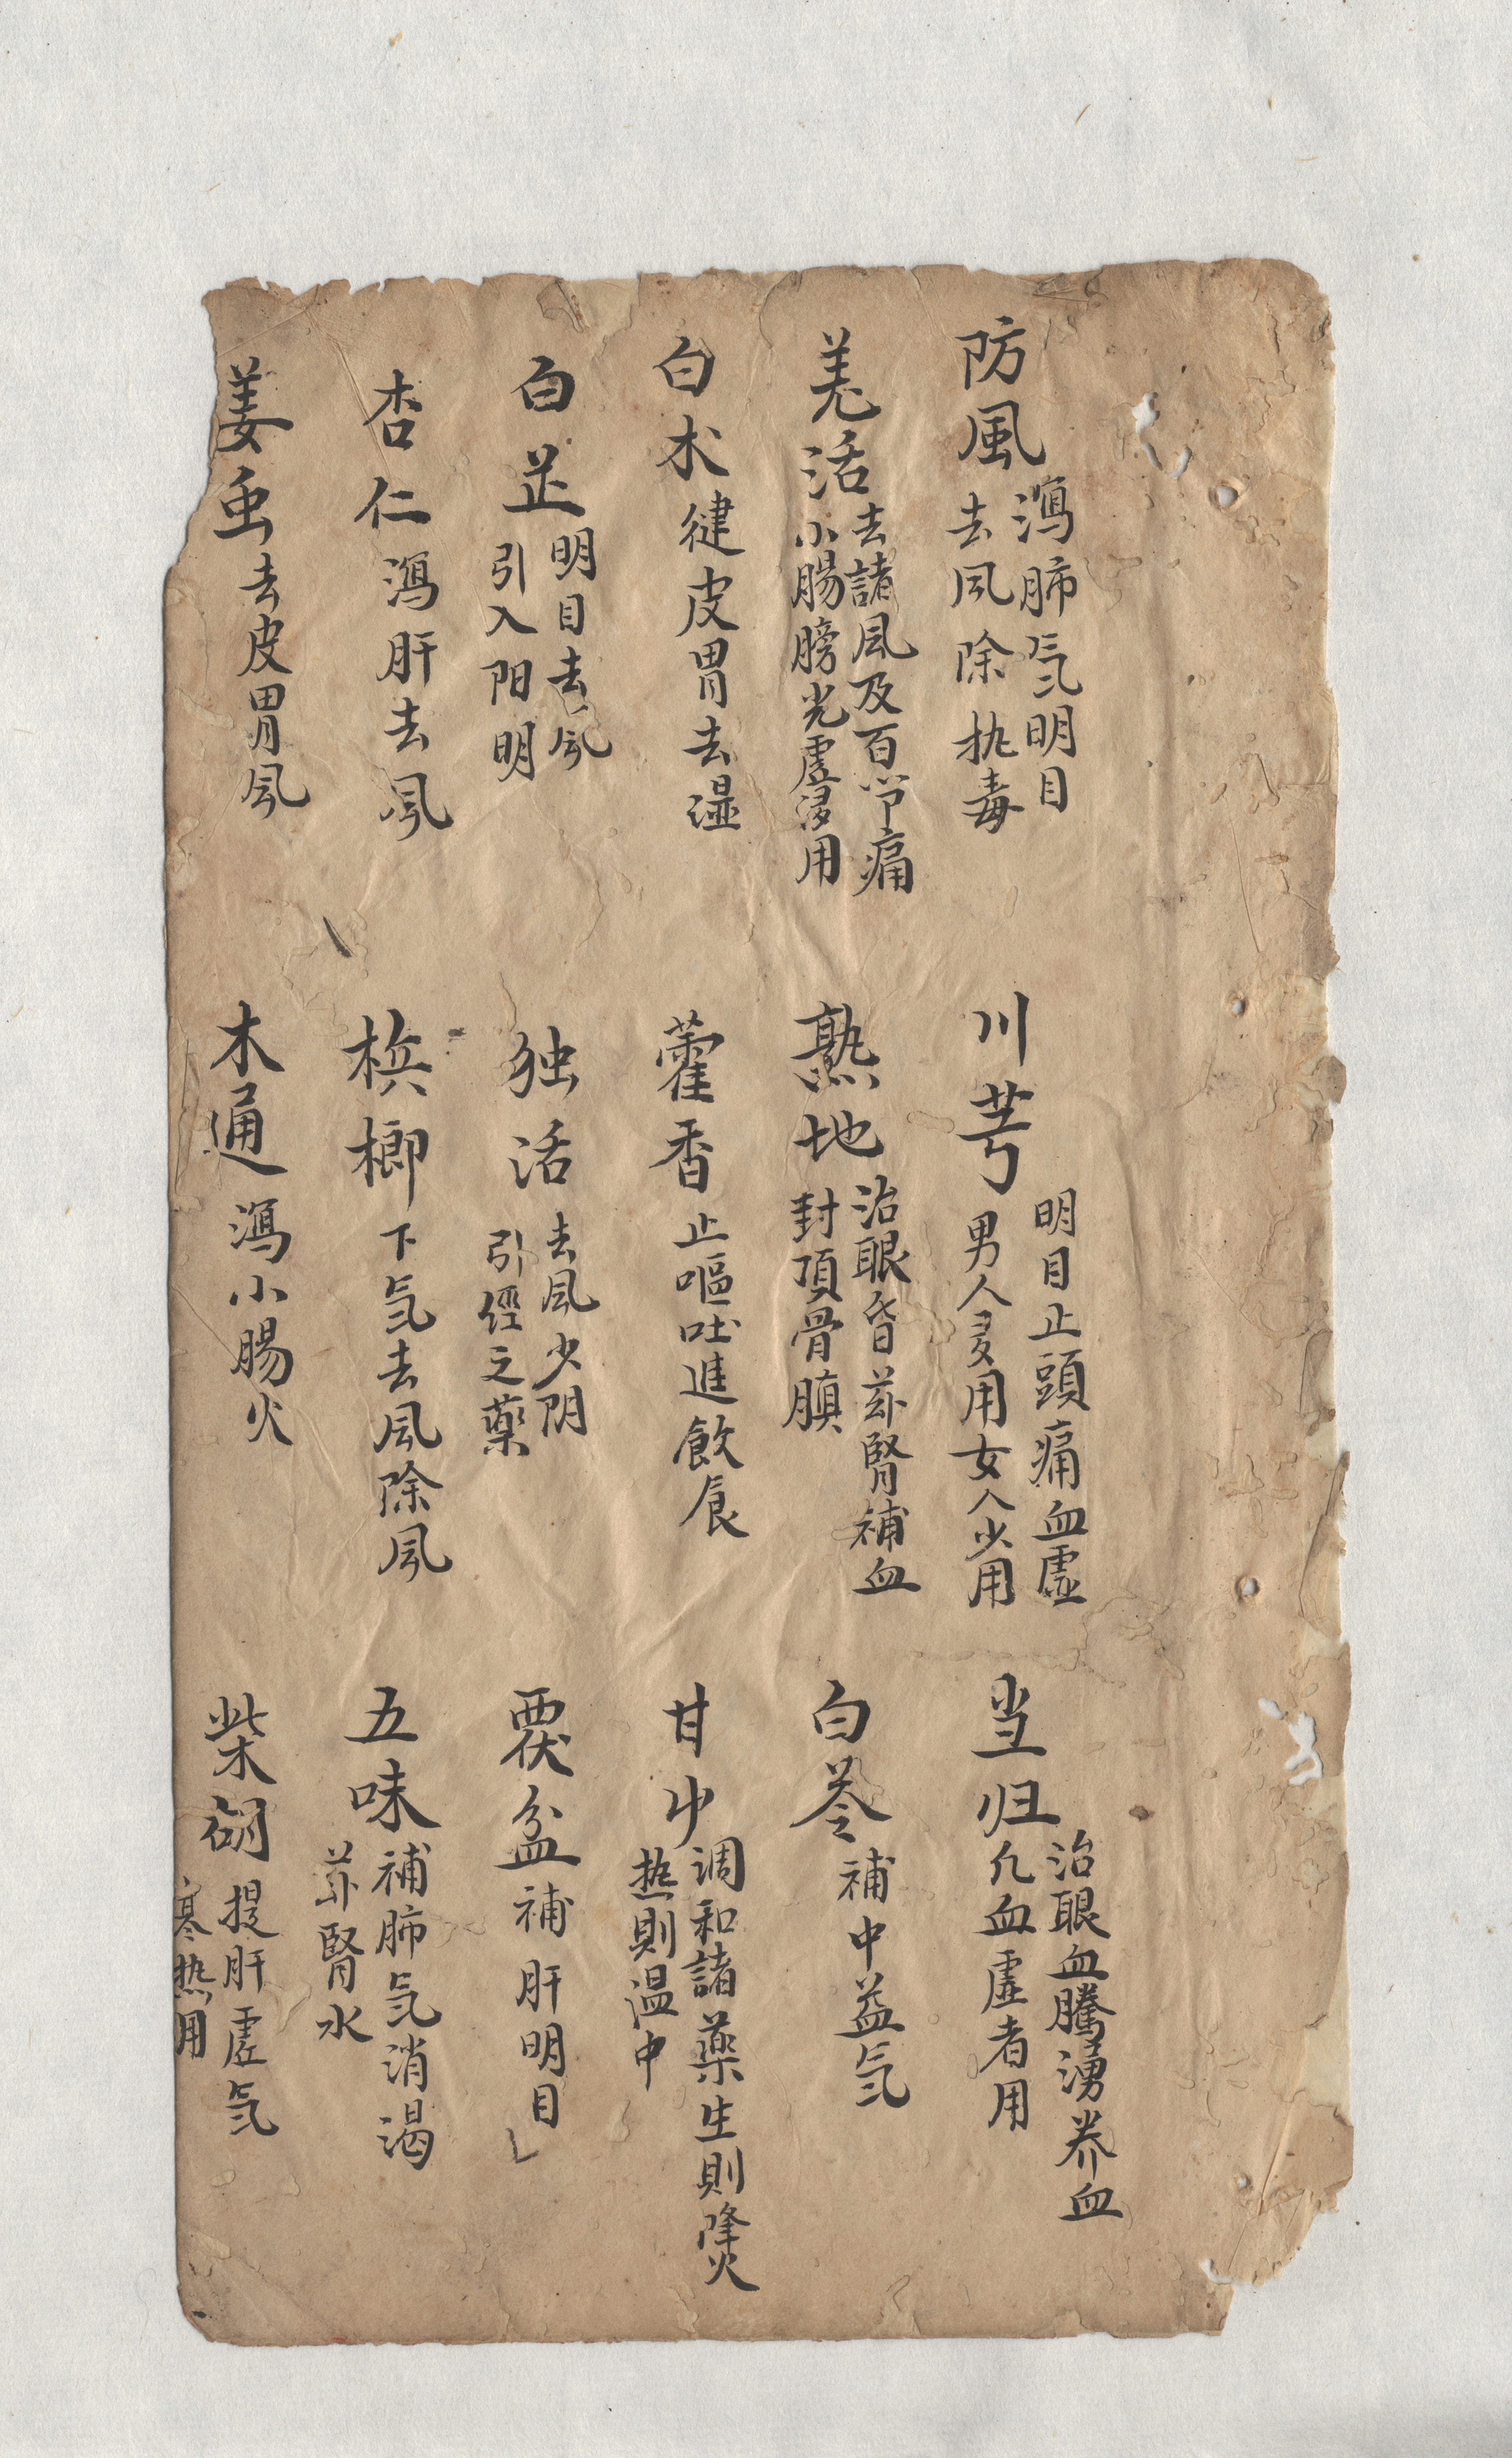 防風 瀉肺気明目
去风除热毒
川芎 明目止頭痛血虛
男人多用女人少用
当归 治眼血騰湧养血
凡血虛者用
羗活 去諸風及百节痛
小腸膀光虛多用
熟地 治眼昏荪腎補血
封項骨䐜
白苓 補中益気
白术 徤皮胃去湿
藿香 止嘔吐進飲食
甘中 调和諸藥生則降火
热則温中
白芷 明目去风
引入阳明
独活 去風少阴
引經之藥
覆盆 補肝明目
杏仁 瀉肝去风
梹榔 下気去風除风
五味 補肺気消渴
荪腎水
姜虫 去皮胃风
木通 瀉小腸火
柴胡 提肝虛気
寒热用